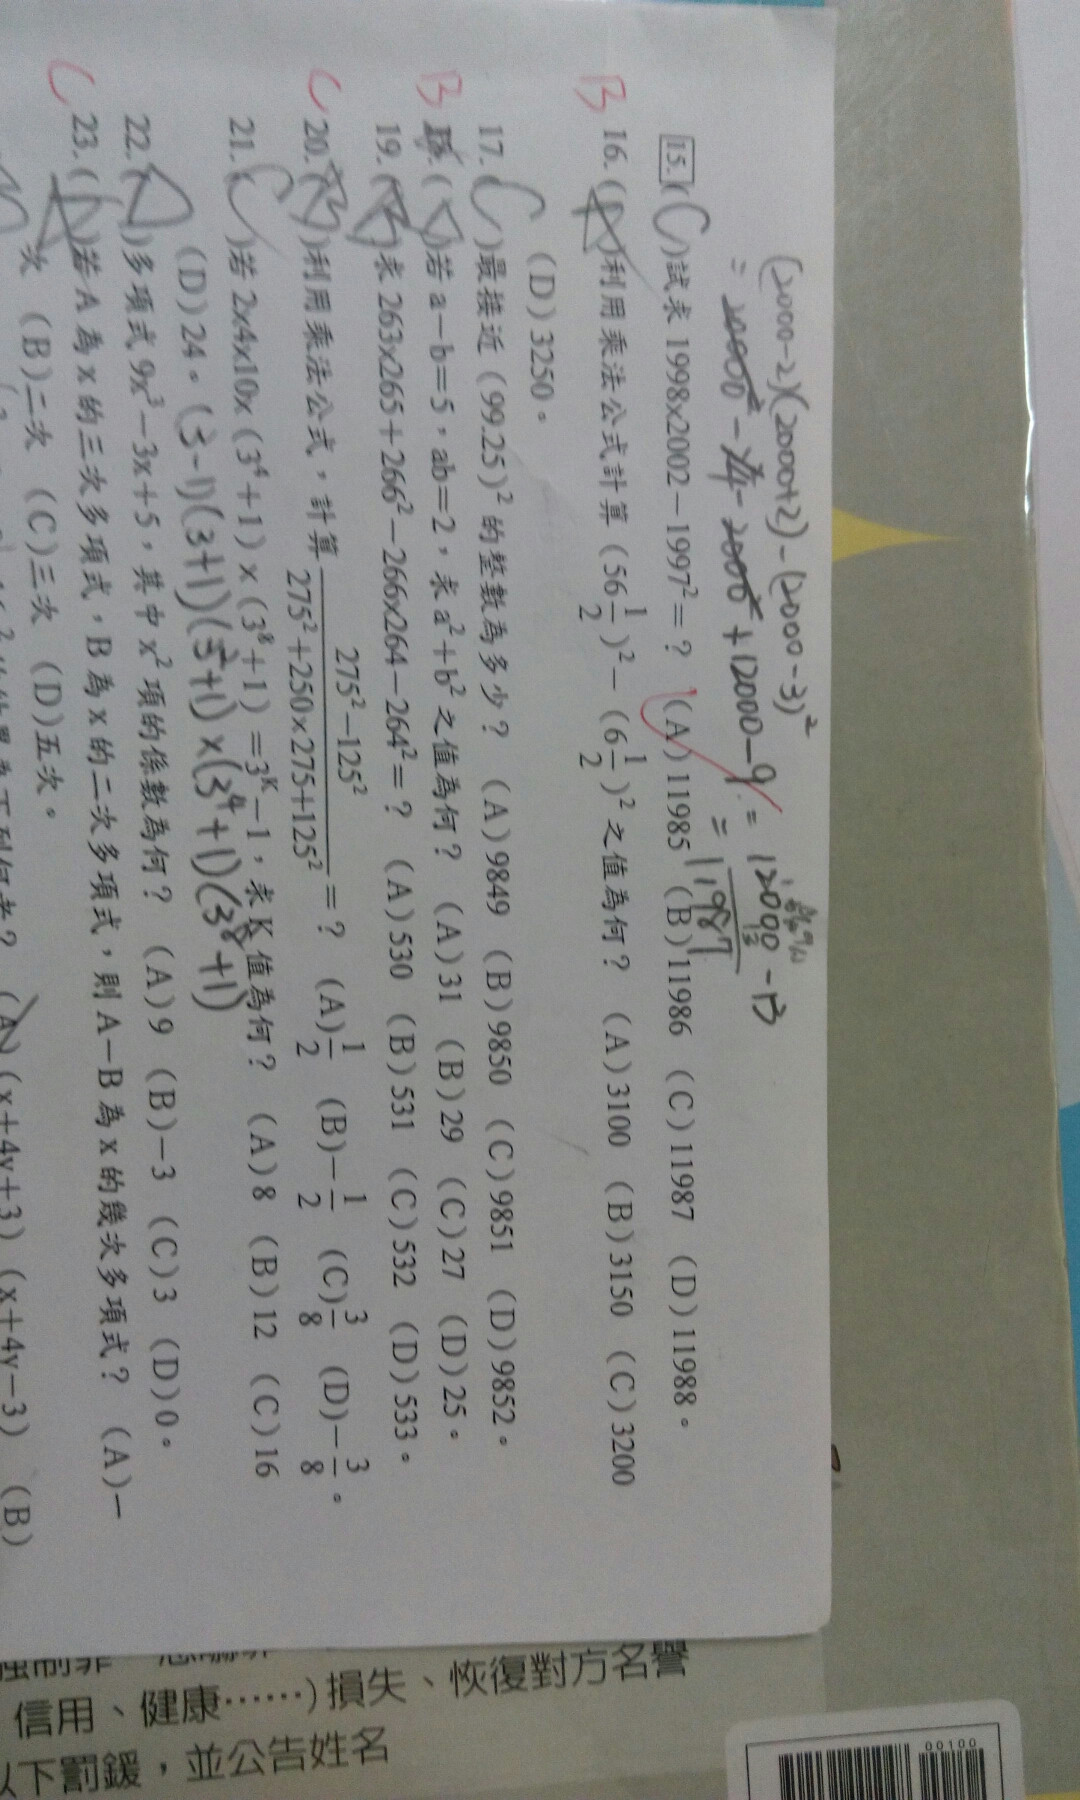 (2000-2)(2000+2)-(2000-3)²
= 2000² - 4 - 2000² + 12000 - 9 = 12000 - 13
= 11987
15.(C)試求 1998x2002－1997²＝？ (A)11985 (B)11986 (C)11987 (D)11988。
B 16.( )利用乘法公式計算（56 1/2）²－（6 1/2）²之值為何？ (A)3100 (B)3150 (C)3200
(D)3250。
17.(C)最接近（99.25）²的整數為多少？ (A)9849 (B)9850 (C)9851 (D)9852。
B 18.( )若 a－b＝5，ab＝2，求 a²＋b²之值為何？ (A)31 (B)29 (C)27 (D)25。
19.( )求 263x265＋266²－266x264－264²＝？ (A)530 (B)531 (C)532 (D)533。
C 20.( )利用乘法公式，計算 275²－125² / 275²＋250×275＋125² ＝？ (A) 1/2 (B)－1/2 (C) 3/8 (D)－3/8。
21.(C)若 2x4x10x（3⁴＋1）x（3⁸＋1）＝3ᴷ－1，求 K 值為何？ (A)8 (B)12 (C)16
(D)24。 (3-1)(3+1)(3²+1)×(3⁴+1)(3⁸+1)
22.( )多項式 9x³－3x＋5，其中 x²項的係數為何？ (A)9 (B)－3 (C)3 (D)0。
C 23.( )若 A 為 x 的三次多項式，B 為 x 的二次多項式，則 A－B 為 x 的幾次多項式？ (A)一
次 (B)二次 (C)三次 (D)五次。
(A)(x＋4y＋3)(x＋4y－3) (B)
信用、健康……)損失、恢復對方名譽
以下罰鍰，並公告姓名
00100